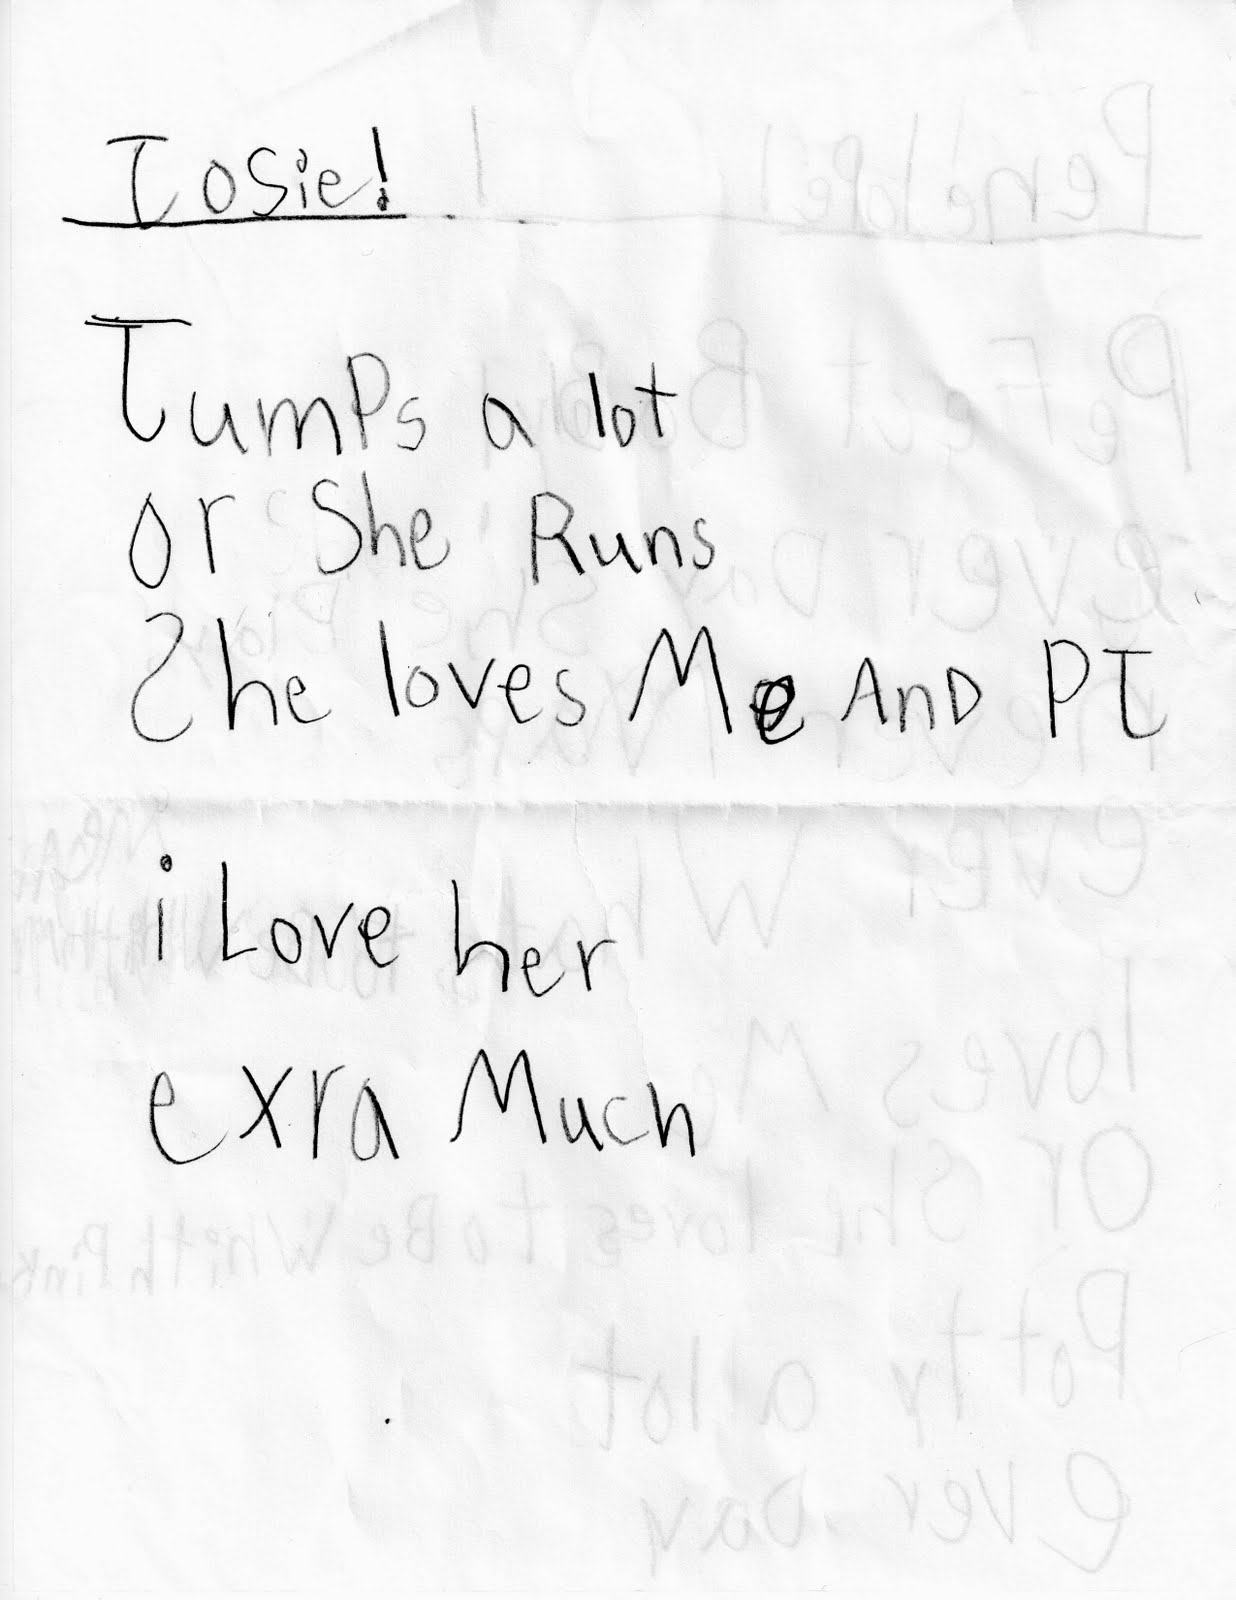 Josie!
Jumps a lot
or She Runs
She loves Me AnD PJ
i Love her
exra Much